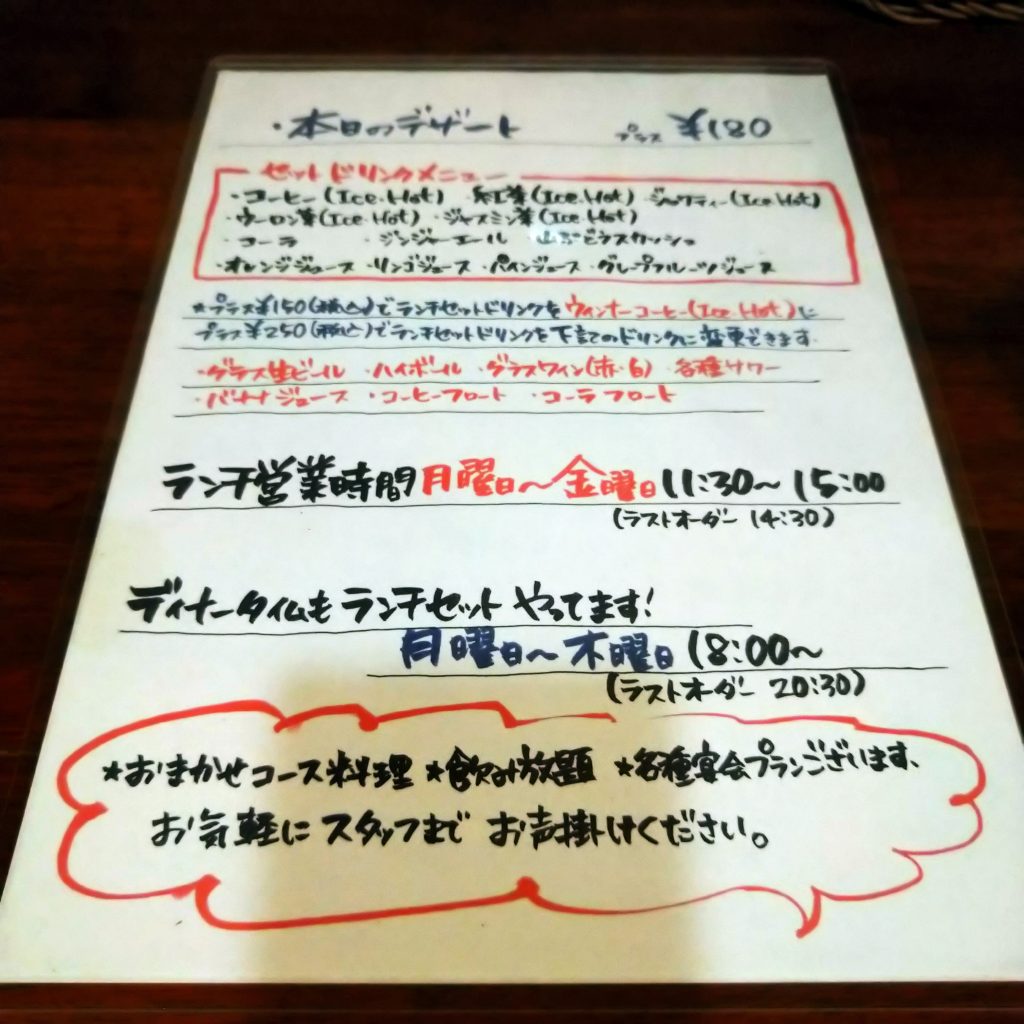 ・本日のデザート プラス ¥180
セットドリンクメニュー
・コーヒー(Ice.Hot) ・紅茶(Ice.Hot) ・ジャワティー(Ice.Hot)
・ウーロン茶(Ice.Hot) ・ジャスミン茶(Ice.Hot)
・コーラ ・ジンジャーエール 山ぶどうスカッシュ
・オレンジジュース ・リンゴジュース ・パインジュース ・グレープフルーツジュース
★プラス¥150(税込)でランチセットドリンクをウィンナーコーヒー(Ice.Hot)に
プラス¥250(税込)でランチセットドリンクを下記のドリンクに変更できます.
・グラス生ビール ・ハイボール ・グラスワイン(赤・白) ・各種サワー
・バナナジュース ・コーヒーフロート ・コーラフロート
ランチ営業時間 月曜日～金曜日 11:30～15:00
(ラストオーダー 14:30)
ディナータイムもランチセットやってます!
月曜日～木曜日 18:00～
(ラストオーダー 20:30)
★おまかせコース料理 ★飲み放題 ★各種宴会プランございます、
お気軽にスタッフまでお声掛けください。